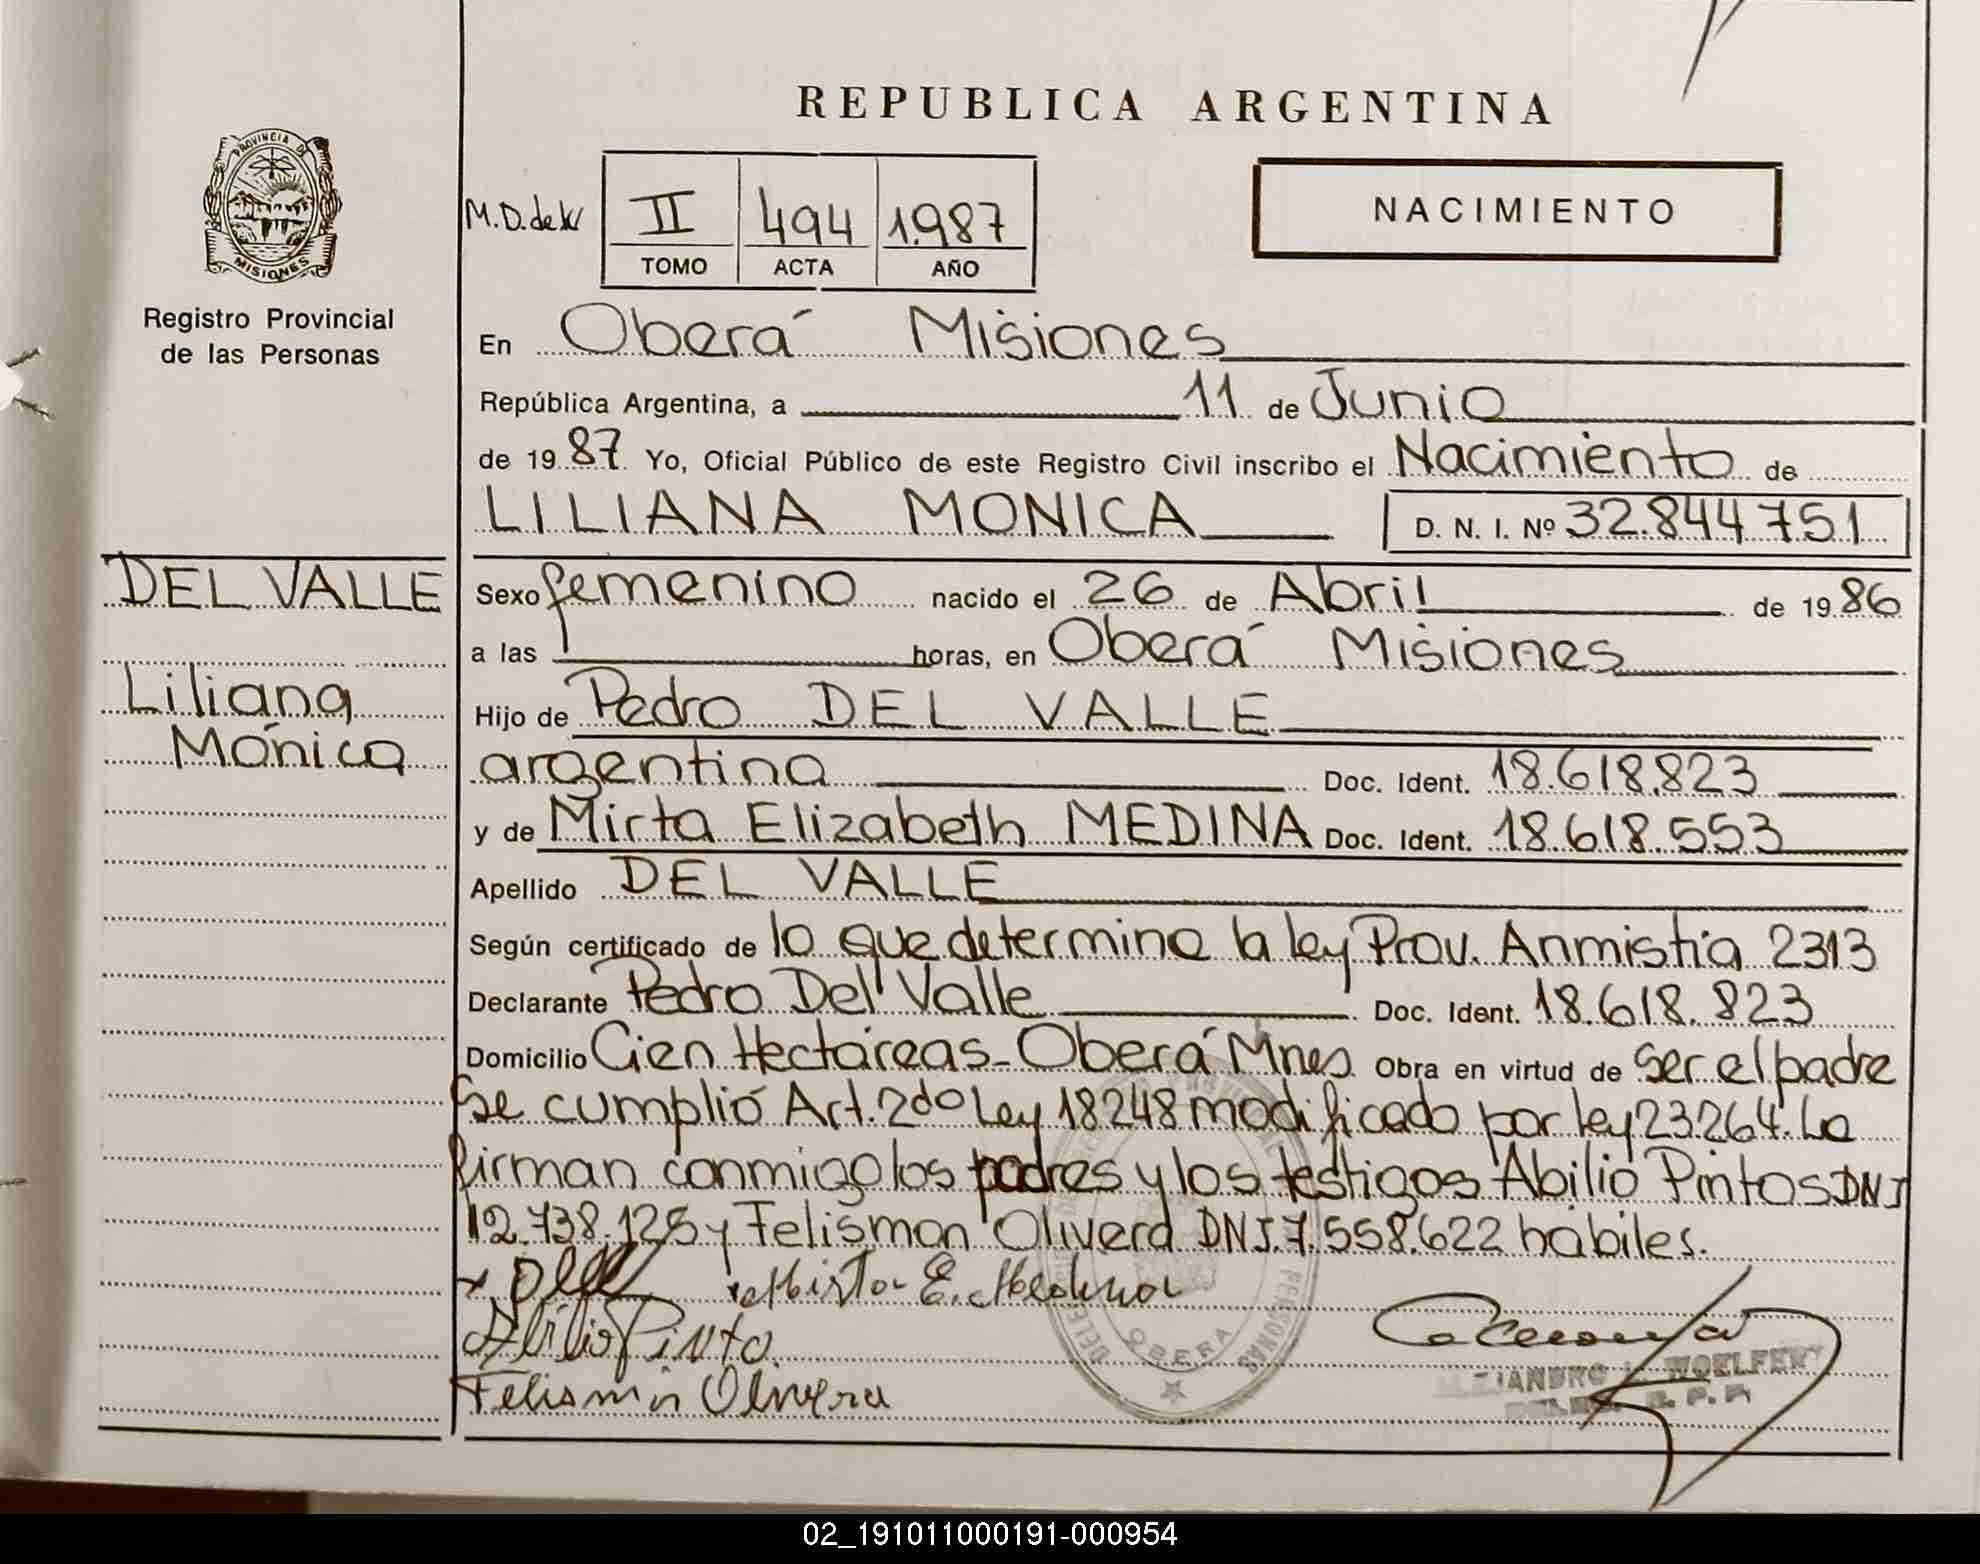 REPUBLICA ARGENTINA
PROVINCIA DE
MISIONES
Registro Provincial
de las Personas
M.D. de
II 494 1.987
TOMO ACTA AÑO
NACIMIENTO
En Oberá Misiones
República Argentina, a 11 de Junio
de 1987 Yo, Oficial Público de este Registro Civil inscribo el Nacimiento de
LILIANA MONICA D. N. I. Nº 32.844.751
DEL VALLE
Liliana
Mónica
Sexo femenino nacido el 26 de Abril de 1986
a las horas, en Oberá Misiones
Hijo de Pedro DEL VALLE
argentina Doc. Ident. 18.618.823
y de Mirta Elizabeth MEDINA Doc. Ident. 18.618.553
Apellido DEL VALLE
Según certificado de lo que determina la ley Prov. Anmistia 2313
Declarante Pedro Del Valle Doc. Ident. 18.618.823
Domicilio Cien Hectáreas-Oberá Mnes. Obra en virtud de ser el padre
Se cumplió Art. 2do Ley 18248 modificado por ley 23.264. La
firman conmigo los padres y los testigos Abilio Pintos DNI
12.738.128 y Felisman Olivera DNI. 7.558.622 hábiles.
Mirta E. Medina
Abilio Pinto.
Felismin Olivera
OBERA
PERSONAS
WOELFERT
02_191011000191-000954